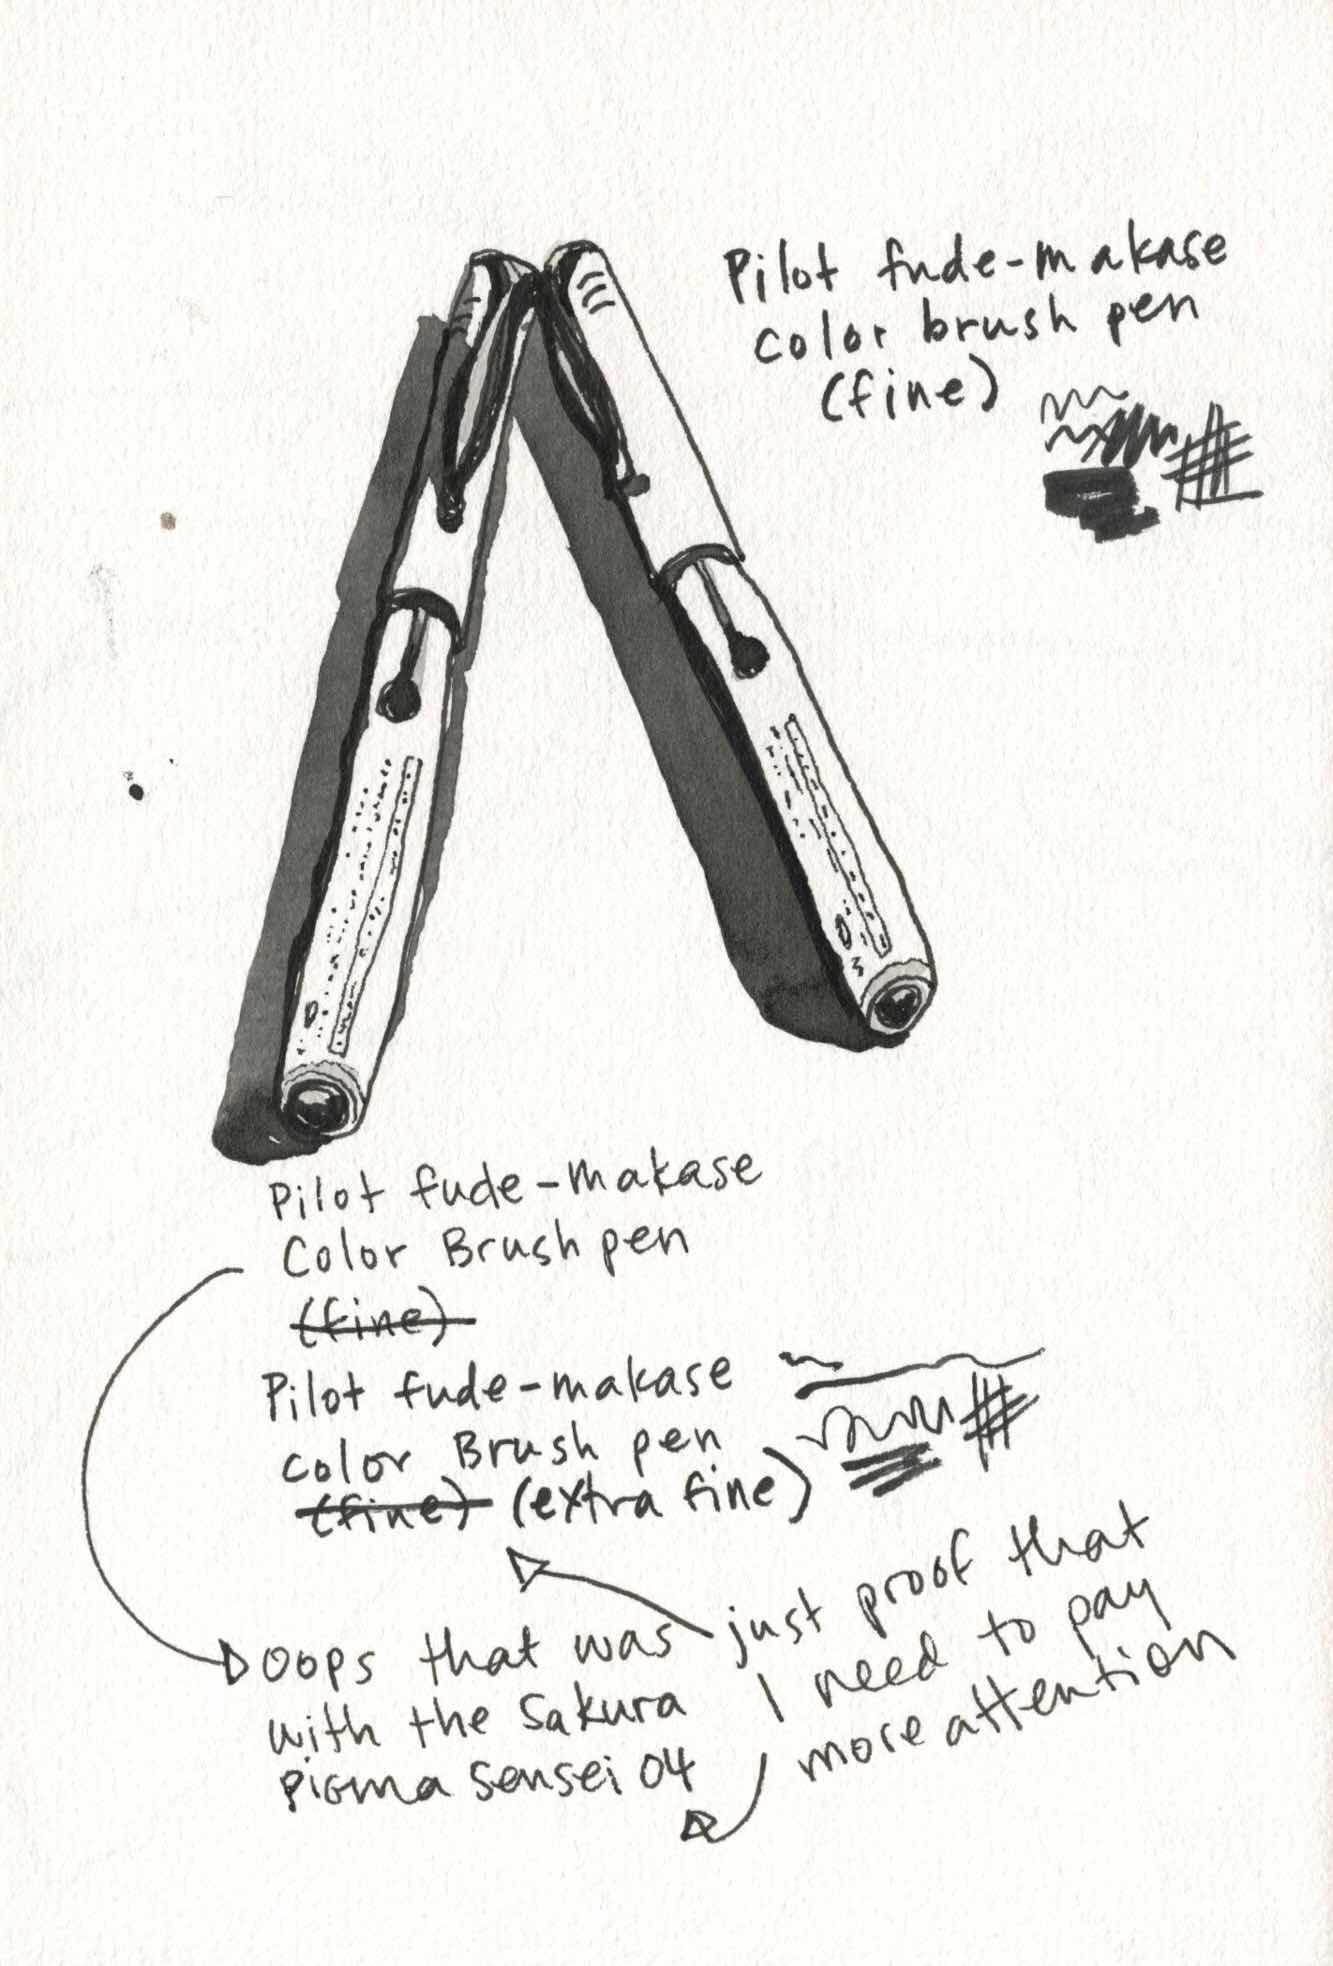 Pilot fude-makase
color brush pen
(fine)
Pilot fude-makase
Color Brush pen
(fine)
Pilot fude-makase
color Brush pen
(fine) (extra fine)
Oops that was
with the Sakura
Pigma Sensei 04
just proof that
I need to pay
more attention